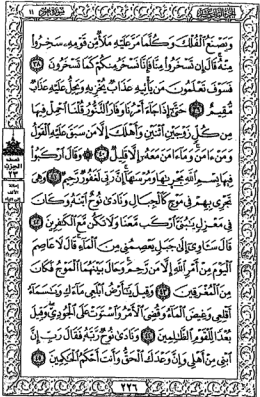 سورة هود ١١
وَيَصْنَعُ ٱلْفُلْكَ وَكُلَّمَا مَرَّ عَلَيْهِ مَلَأٌ مِّن قَوْمِهِۦ سَخِرُوا۟
مِنْهُ قَالَ إِن تَسْخَرُوا۟ مِنَّا فَإِنَّا نَسْخَرُ مِنكُمْ كَمَا تَسْخَرُونَ ٣٨
فَسَوْفَ تَعْلَمُونَ مَن يَأْتِيهِ عَذَابٌ يُخْزِيهِ وَيَحِلُّ عَلَيْهِ عَذَابٌ
مُّقِيمٌ ٣٩ حَتَّىٰٓ إِذَا جَآءَ أَمْرُنَا وَفَارَ ٱلتَّنُّورُ قُلْنَا ٱحْمِلْ فِيهَا
مِن كُلٍّ زَوْجَيْنِ ٱثْنَيْنِ وَأَهْلَكَ إِلَّا مَن سَبَقَ عَلَيْهِ ٱلْقَوْلُ
وَمَنْ ءَامَنَ وَمَآ ءَامَنَ مَعَهُۥٓ إِلَّا قَلِيلٌ ٤٠ وَقَالَ ٱرْكَبُوا۟
فِيهَا بِسْمِ ٱللَّهِ مَجْر۪ىٰهَا وَمُرْسَىٰهَآ إِنَّ رَبِّى لَغَفُورٌ رَّحِيمٌ ٤١ وَهِىَ
تَجْرِى بِهِمْ فِى مَوْجٍ كَٱلْجِبَالِ وَنَادَىٰ نُوحٌ ٱبْنَهُۥ وَكَانَ
فِى مَعْزِلٍ يَـٰبُنَىَّ ٱرْكَب مَّعَنَا وَلَا تَكُن مَّعَ ٱلْكَـٰفِرِينَ ٤٢
قَالَ سَـَٔاوِىٓ إِلَىٰ جَبَلٍ يَعْصِمُنِى مِنَ ٱلْمَآءِ قَالَ لَا عَاصِمَ
ٱلْيَوْمَ مِنْ أَمْرِ ٱللَّهِ إِلَّا مَن رَّحِمَ وَحَالَ بَيْنَهُمَا ٱلْمَوْجُ فَكَانَ
مِنَ ٱلْمُغْرَقِينَ ٤٣ وَقِيلَ يَـٰٓأَرْضُ ٱبْلَعِى مَآءَكِ وَيَـٰسَمَآءُ
أَقْلِعِى وَغِيضَ ٱلْمَآءُ وَقُضِىَ ٱلْأَمْرُ وَٱسْتَوَتْ عَلَى ٱلْجُودِىِّ وَقِيلَ
بُعْدًا لِّلْقَوْمِ ٱلظَّـٰلِمِينَ ٤٤ وَنَادَىٰ نُوحٌ رَّبَّهُۥ فَقَالَ رَبِّ إِنَّ
ٱبْنِى مِنْ أَهْلِى وَإِنَّ وَعْدَكَ ٱلْحَقُّ وَأَنتَ أَحْكَمُ ٱلْحَـٰكِمِينَ ٤٥
الحزب
٢٣
٢٢٦